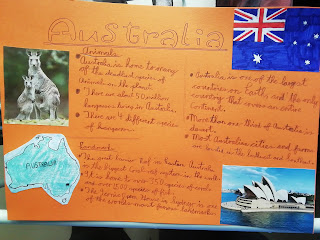 Australia
Animals
• Australia is home to many
of the deadliest species of
animals on the planet.
• There are about 50 million
kangaroos living in Australia.
• There are 4 different species
of kangaroos.
• Australia is one of the largest
countries on Earth, and the only
country that covers an entire
Continent.
• More than one-third of Australia is
desert.
• Most Australian cities and farms
are located in the
AUSTRALIA
Landmarks
• The Great Barrier Reef in Eastern Australia
is the biggest coral-reef system in the world
• It is home to over 350 species of corals
and over 1500 species of fish.
• The Opera House in Sydney is one
of the worlds most famous landmarks.